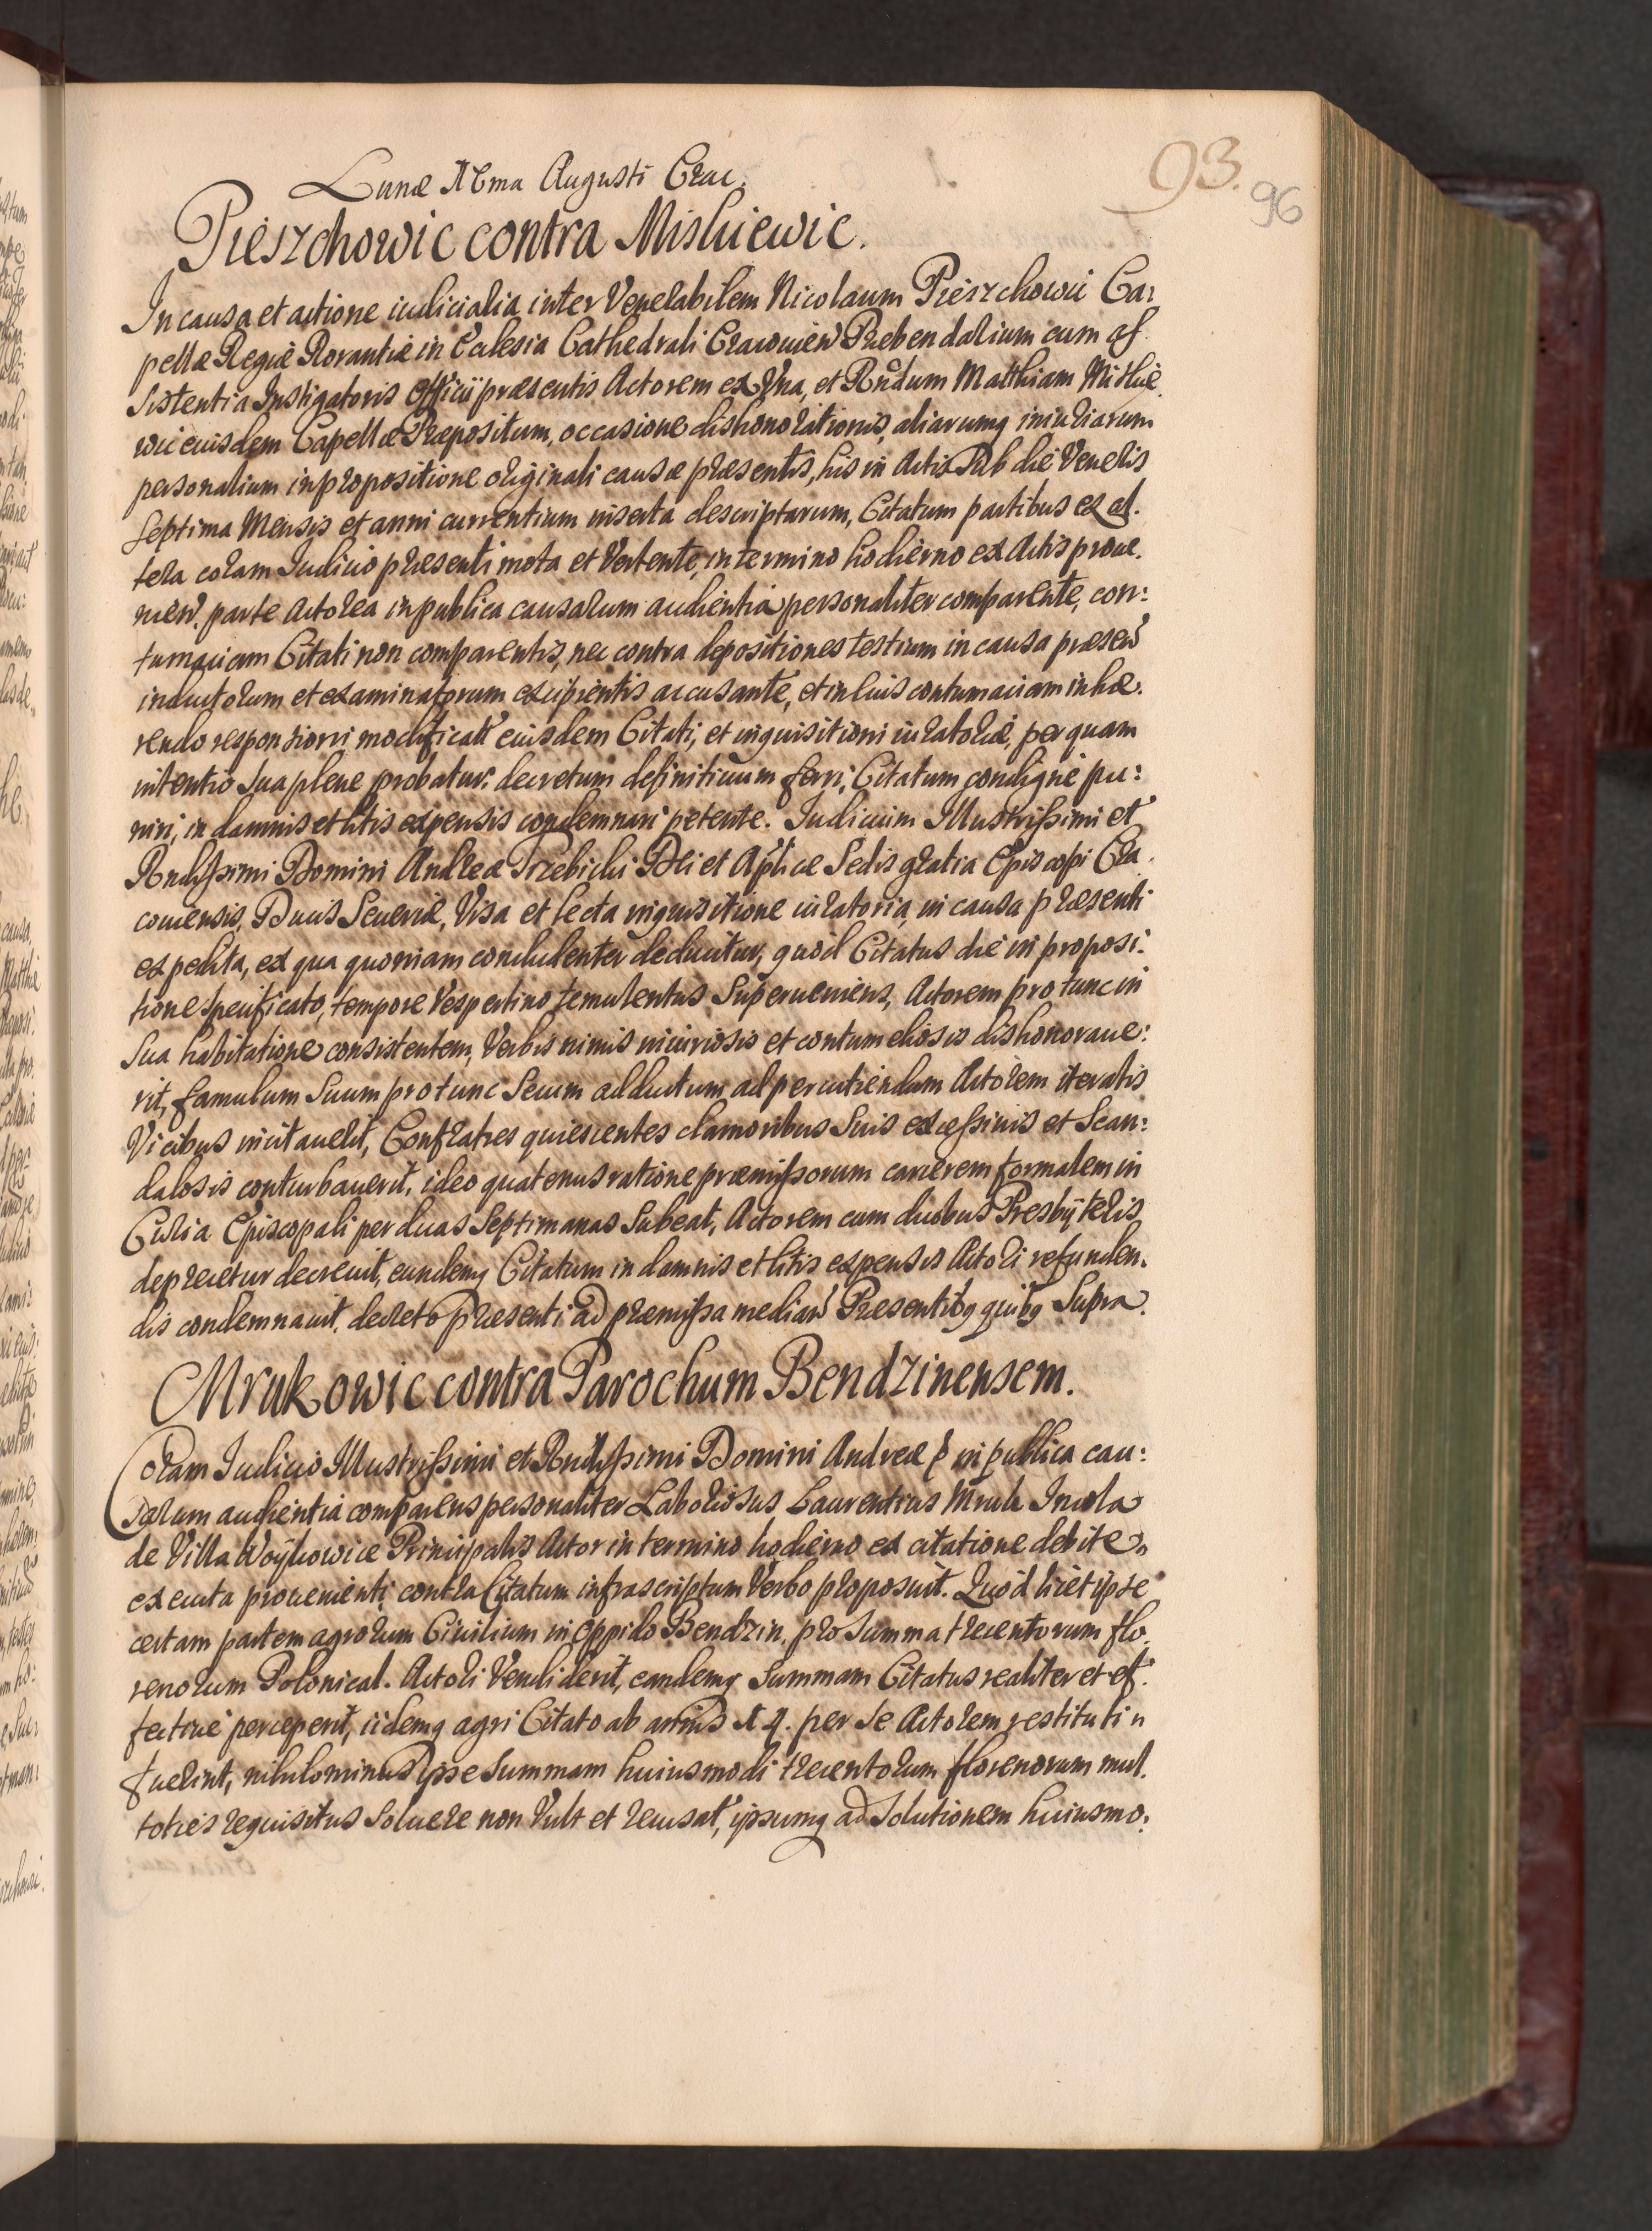 93.
96
Lunæ Augusti Crac.
Pieszchowic contra Miskiewic.
In causa et actione iudicialia inter Venerabilem Nicolaum Pieszchowic Ca:
pellæ Regiæ Rorantiæ in Ecclesia Cathedrali Cracouien Præbendarium cum as
sistentia Instigatoris Officii præsentis Actorem ex Vna, et Rndum Matthiam Miskie
wic eiusdem Capellæ Præpositum, occasione dishonorationis, aliarumq iniuriarum
personalium in propositione originali causæ præsentis, his in Actis sub die Veneris
septima Mensis et anni currentium inserta descriptarum, Citatum partibus ex al.
tera coram Iudicio præsenti mota et Vertente, in termino hodierno ex Actis proue.
nien. parte Actorea in publica causarum audientia personaliter comparente, con:
tumaciam Citati non comparentis, nec contra depositiones testium in causa præsen
inductorum et examinatorum excipientis accusante, et in huis contumaciam inhæ.
rendo responsioni modificatt eiusdem Citati, et inquisitioni iuratoriæ, per quam
intentio sua plene probatur. decretum definitiuum ferri, Citatum condigne pu:
niri, in damnis et litis expensis condemnari petente. Iudicium Illustrissimi et
Rndissimi Domini Andreæ Trzebicki Dei et Aplicæ Sedis gratia Episcopi Cra.
couiensis, Ducis Seueriæ, Visa et lecta inquisitione iuratoria, in causa præsenti
expedita, ex qua quoniam concludenter deducitur, quod Citatus die in proposi:
tione specificato, tempore Vespertino temulentus superueniens, Actorem pro tunc in
sua habitatione consistentem, Verbis nimis iniuriosis et contumeliosis dishonoraue:
rit, famulum suum pro tunc secum adductum ad percutiendum Actorem iteratis
Vicibus incitauerit, Confratres quiescentes clamoribus suis excessiuis et Scan:
dalosis conturbauerit, ideo quatenus ratione præmissorum carcerem formalem in
Curia Episcopali per duas septimanas subeat, Actorem cum duobus Presbyteris
deprecetur decreuit, eundemq Citatum in damnis et litis expensis Actori refunden.
dis condemnauit. decreto præsenti ad præmissa median Præsentibq quibq Supra.
Mrukowic contra Parochum Bendzinensem.
Coram Iudicio Illustrissimi et Rndissimi Domini Andreæ in publica cau:
sarum audientia comparens personaliter Laboriosus Laurentius Mruk Incola
de Villa Woykowice Principalis Actor in termino hodierno ex citatione debite
executa prouenienti, contra Citatum infrascriptum Verbo proposuit. Quod licet ipse
certam partem agrorum Ciuilium in Oppido Bendzin. pro summa trecentorum flo.
renorum Polonical. Actori Vendiderit, eandemq summam Citatus realiter et ef.
fectiue perceperit, iidemq agri Citato ab annis per se Actorem restituti
fuerint, nihilominus ipse summam huiusmodi trecentorum florenorum mul.
toties requisitus soluere non Vult et recusat, ipsumq ad solutionem huiusmo: